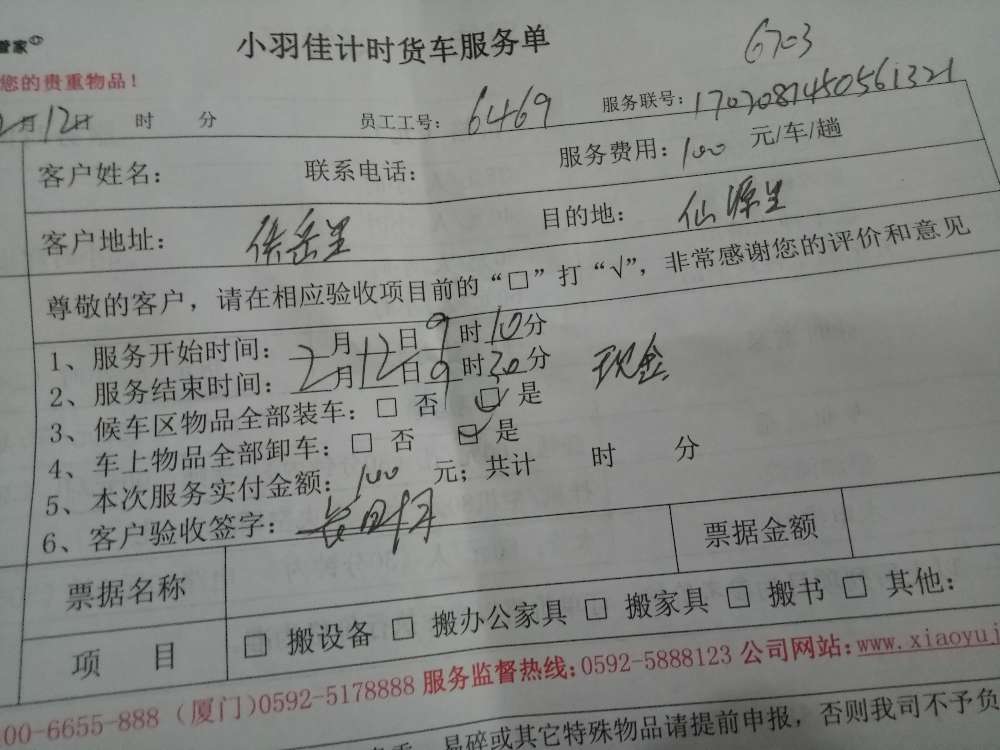 管家
小羽佳计时货车服务单
6703
您的贵重物品！
2月12日 时 分 员工工号：6469 服务联号：1702081450561321
客户姓名： 联系电话： 服务费用：100 元/车/趟
客户地址：侯岳里 目的地：仙源里
尊敬的客户，请在相应验收项目前的“□”打“√”，非常感谢您的评价和意见
1、服务开始时间：2月12日9时10分
2、服务结束时间：2月12日9时30分 现金
3、候车区物品全部装车：□ 否 ☑ 是
4、车上物品全部卸车：□ 否 ☑ 是
5、本次服务实付金额：100 元；共计 时 分
6、客户验收签字：
票据名称 票据金额
项 目 □ 搬设备 □ 搬办公家具 □ 搬家具 □ 搬书 □ 其他：
00-6655-888（厦门)0592-5178888 服务监督热线：0592-5888123 公司网站：www.xiaoyuj
易碎或其它特殊物品请提前申报，否则我司不予负